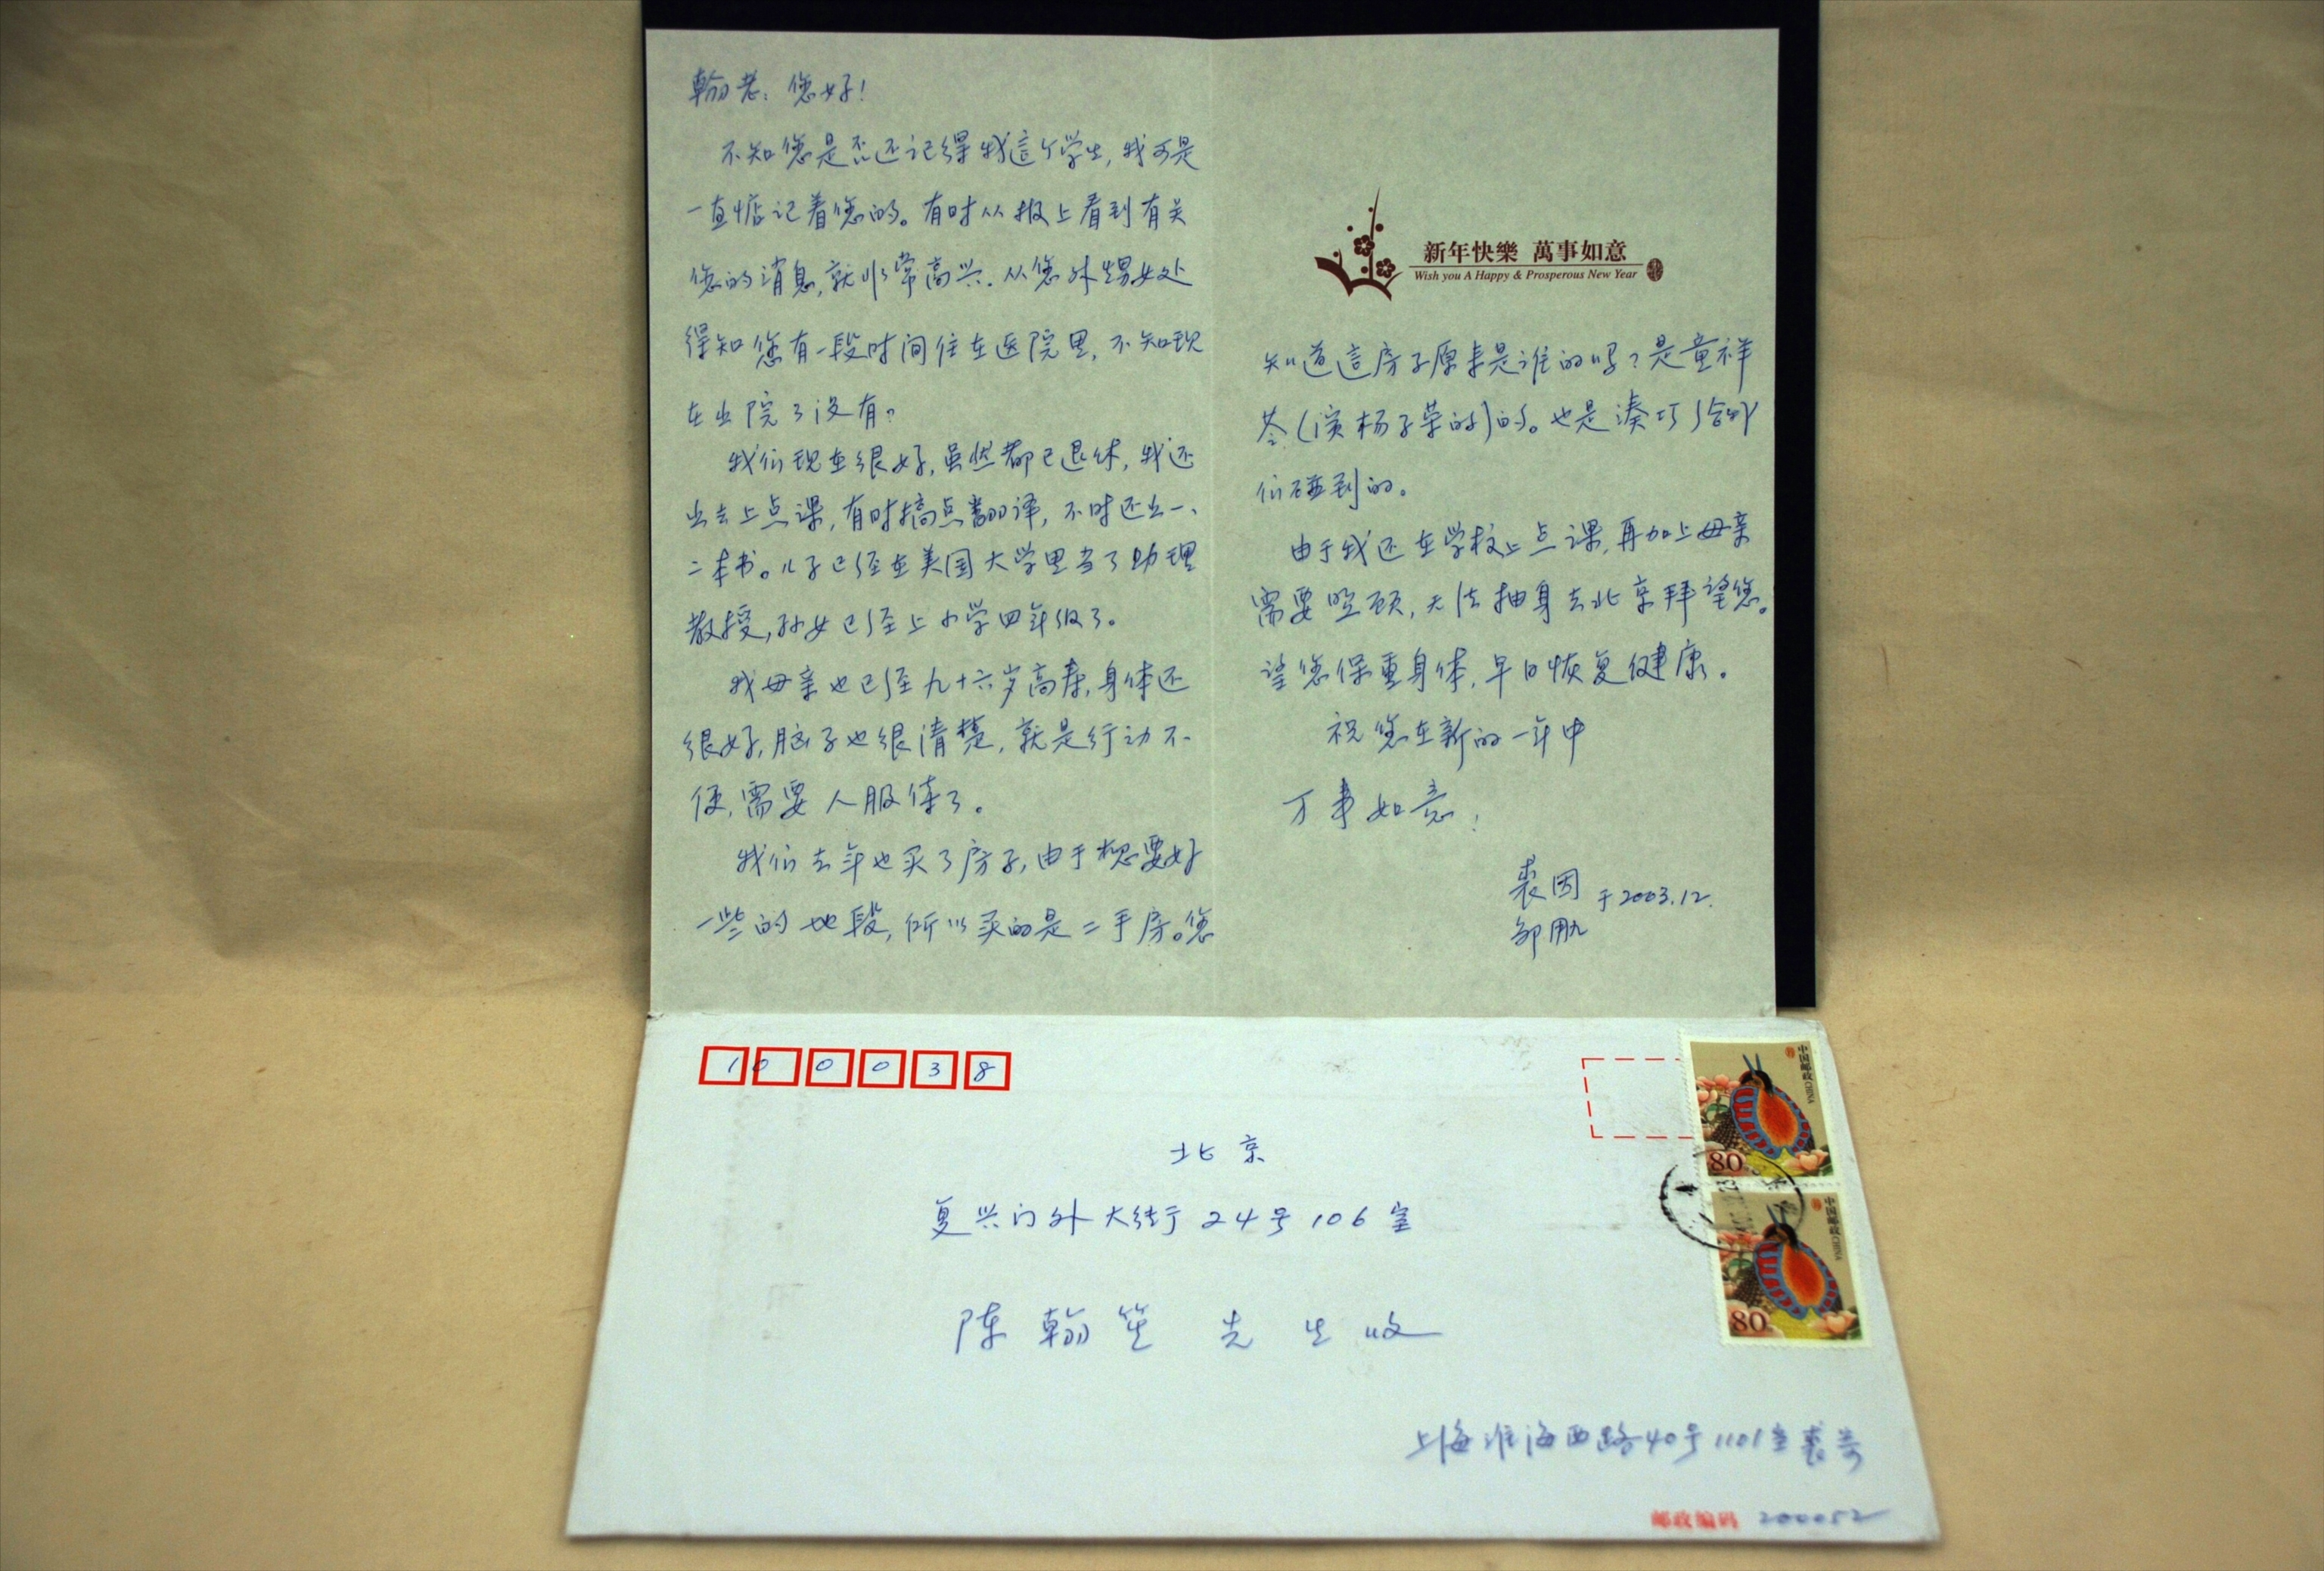 翰老：您好！
不知您是否还记得我這个学生，我可是
一直惦记着您的。有时从报上看到有关
您的消息，就非常高兴。从您外甥女处
得知您有一段时间住在医院里，不知现
在出院了没有？
我们现在很好，虽然都已退休，我还
出去上点课，有时搞点翻译，不时还出一、
二本书。儿子已经在美国大学里当了助理
教授，孙女已经上小学四年级了。
我母亲也已经九十六岁高寿，身体还
很好，脑子也很清楚，就是行动不
便，需要人服侍了。
我们去年也买了房子，由于想要好
一些的地段，所以买的是二手房。您
新年快樂 萬事如意
Wish you A Happy & Prosperous New Year
知道這房子原来是谁的吗？是童祥
苓（演杨子荣的）的。也是凑巧给我
们碰到的。
由于我还在学校上点课，再加上母亲
需要照顾，无法抽身去北京拜望您。
望您保重身体，早日恢复健康。
祝您在新的一年中
万事如意！
裘因 于2003.12.
邹用九
100038
北京
复兴门外大街24号106室
陈翰笙 先生收
上海淮海西路40号1101室裘寄
邮政编码 200052
中国邮政 CHINA
80
中国邮政 CHINA
80